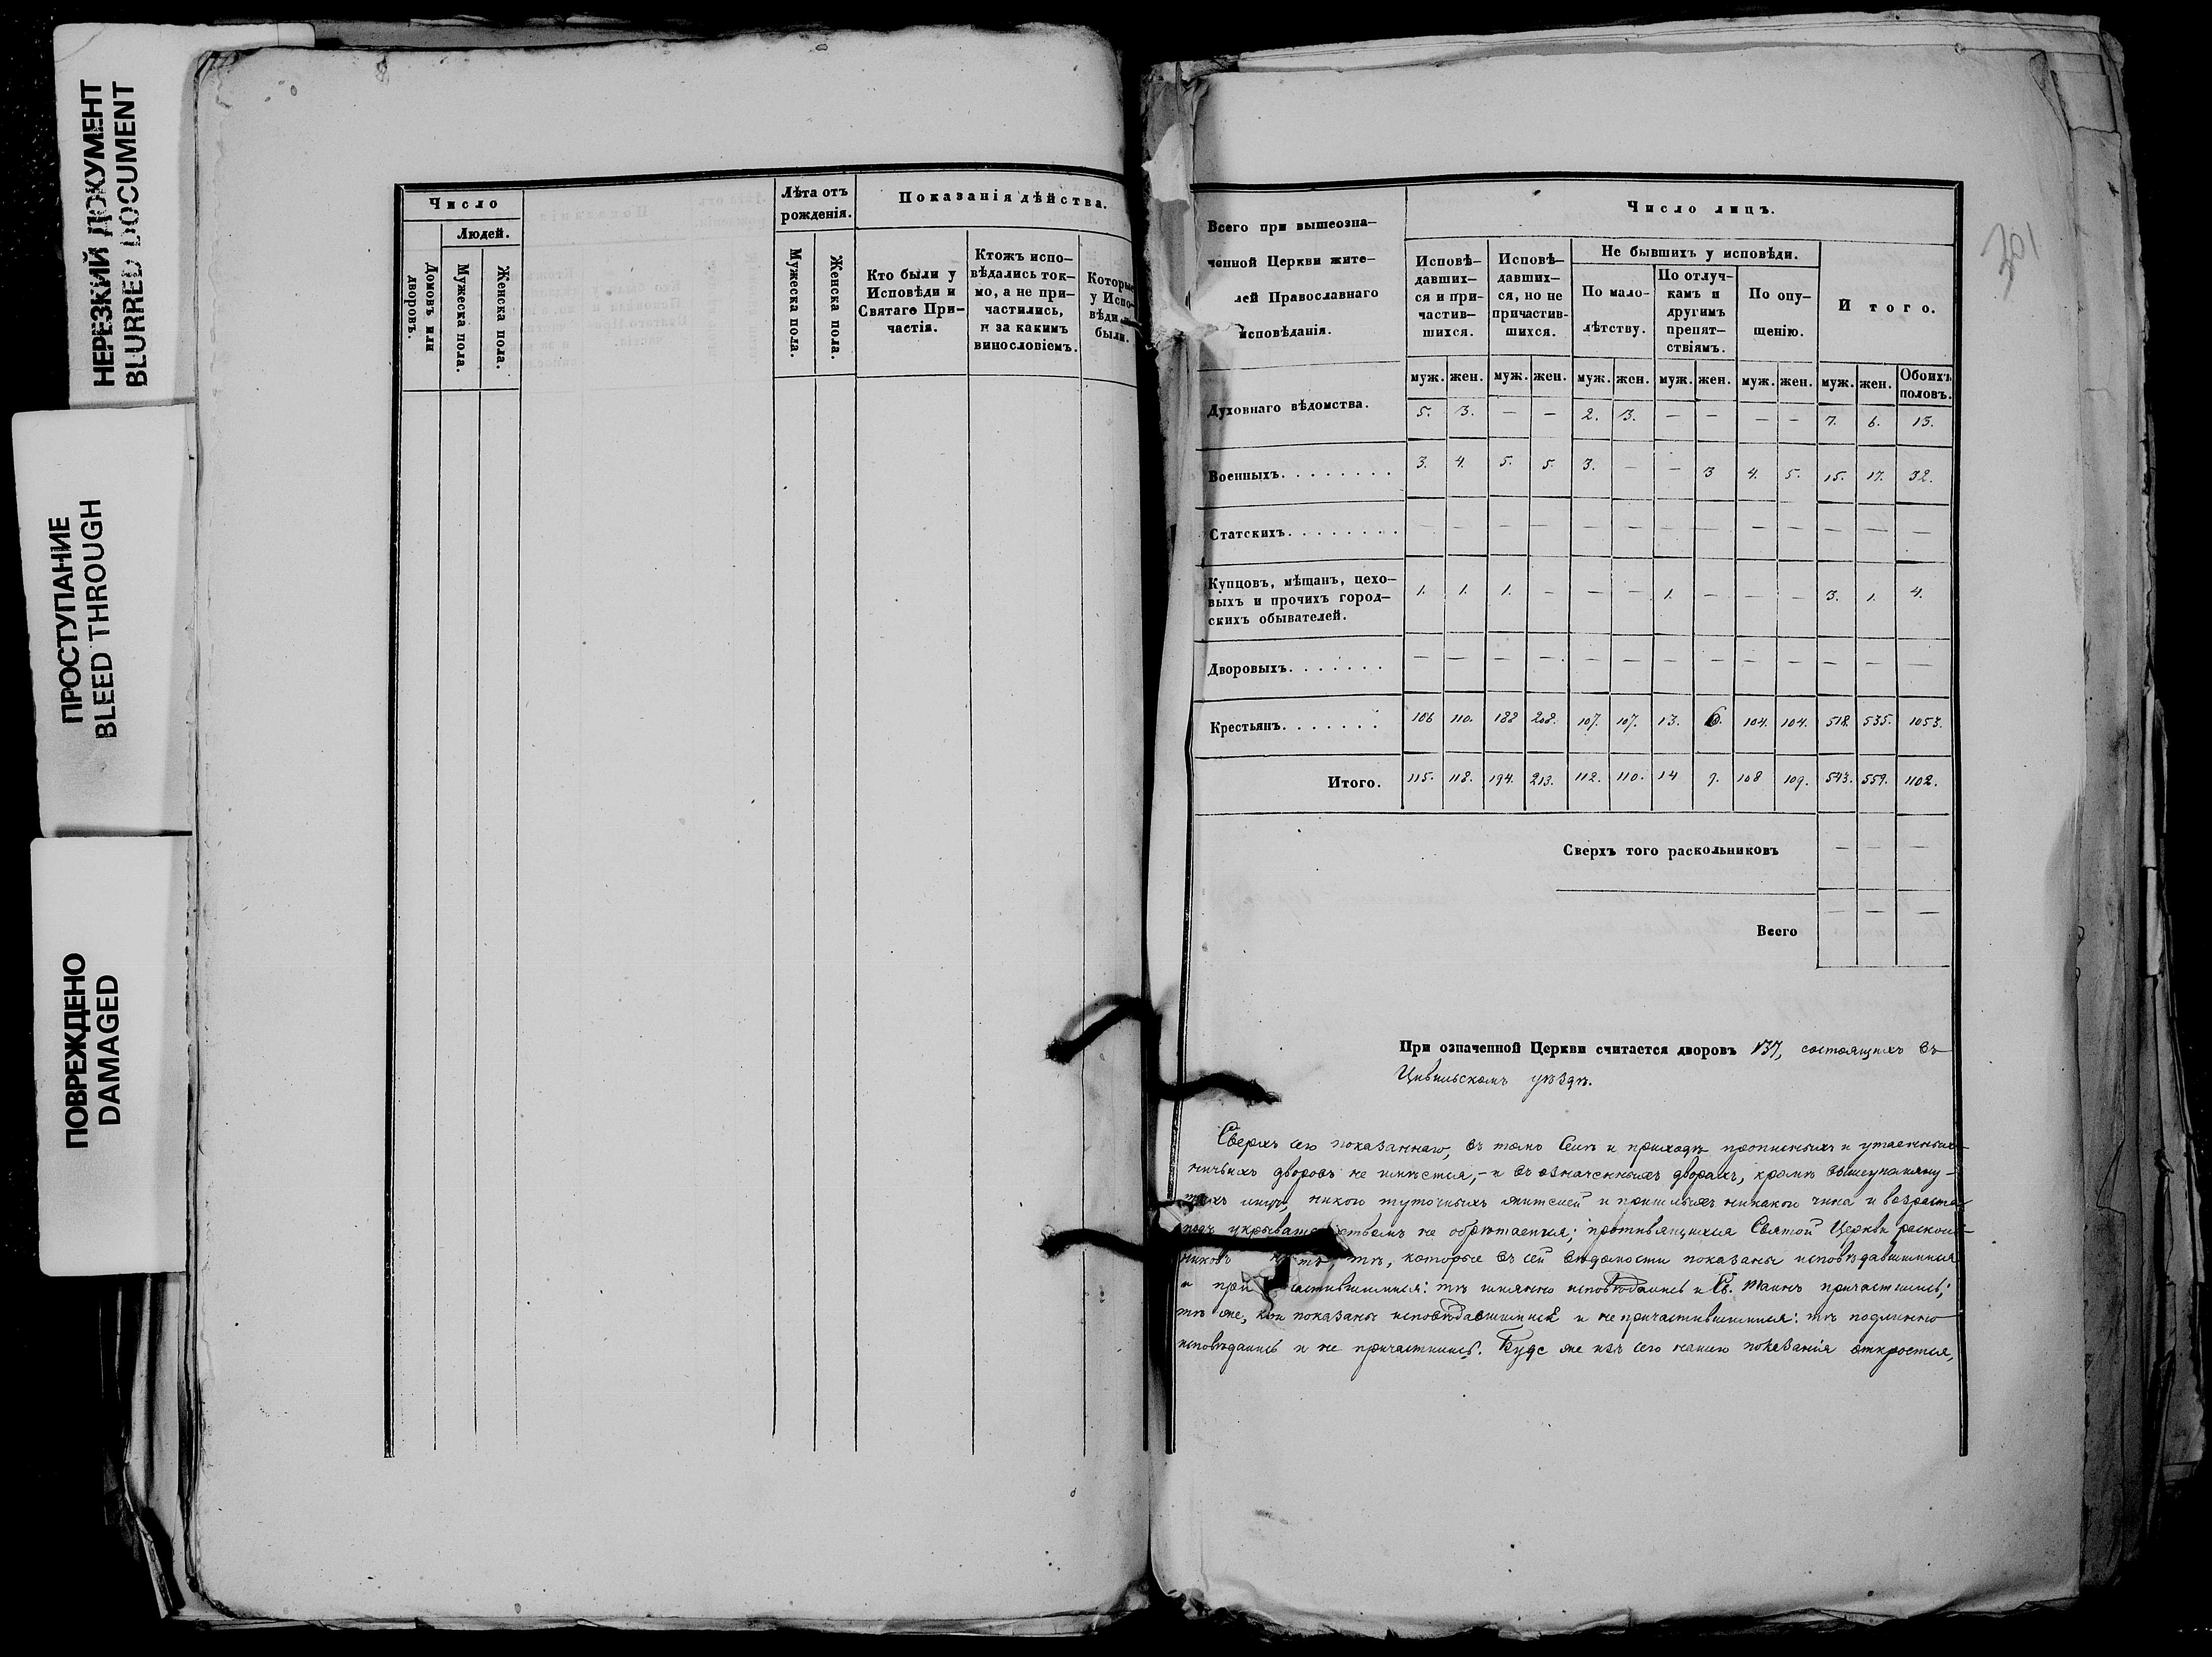 НЕРЕЗКИЙ ДОКУМЕНТ
BLURRED DOCUMENT
ПРОСТУПАНИЕ
BLEED THROUGH
ПОВРЕЖДЕНО
DAMAGED
Число
Людей.
Домовъ или дворовъ.
Мужеска пола.
Женска пола.
Лѣта отъ рожденія.
Мужеска пола.
Женска пола.
Показанія дѣйства.
Кто были у
Исповѣди и
Святаго При-
частія.
Ктожъ испо-
вѣдались ток-
мо, а не при-
частились,
и за какимъ
винословіемъ.
Которые
у Испо-
вѣди не
были.
301
Всего при вышеозна-
ченной Церкви жите-
лей Православнаго
исповѣданія.
Число лицъ.
Исповѣ-
давших-
ся и при-
частив-
шихся.
Исповѣ-
давших-
ся, но не
причастив-
шихся.
Не бывшихъ у исповѣди.
По мало-
лѣтству.
По отлуч-
камъ и
другимъ
препят-
ствіямъ.
По опу-
щенію.
Итого.
муж. жен. муж. жен. муж. жен. муж. жен. муж. жен. муж. жен. Обоихъ половъ.
Духовнаго вѣдомства. 5. 3. — — 2. 3. — — — — 7. 6. 13.
Военныхъ. . . . . . . . 3. 4. 5. 5. 3. — — 3 4. 5. 15. 17. 32.
Статскихъ. . . . . . . . — — — — — — — — — — — — —
Купцовъ, мѣщанъ, цехо-
выхъ и прочихъ город-
скихъ обывателей. 1. 1. 1. — — — 1. — — — 3. 1. 4.
Дворовыхъ. . . . . . . — — — — — — — — — — — — —
Крестьянъ. . . . . . . 106 110. 188 208. 107. 107. 13. 6. 104. 104. 518. 535. 1053.
Итого. 115. 118. 194. 213. 112. 110. 14 9. 108 109. 543. 559. 1102.
Сверхъ того раскольниковъ — — —
Всего — — —
При означенной Церкви считается дворовъ 137, состоящихъ въ
Цивильскомъ уѣздѣ.
Сверхъ сего показаннаго, въ томъ Селѣ и приходѣ прописныхъ и утаенныхъ
ничьихъ дворовъ не имѣется, – и въ означенныхъ дворахъ, кромѣ вышеупомяну-
тыхъ лицъ, никого туточныхъ жителей и пришлыхъ никакого чина и возраста
подъ укрыватель ствомъ не обрѣтается; противящихся Святой Церкви расколь-
никовъ нѣтъ, тѣ, которые въ сей вѣдомости показаны исповѣдавшимися
и при частившимися: тѣ имянно исповѣдались и Св. таинъ причастились;
тѣ же, кои показаны исповѣдавшимися и не причастившимися: тѣ подлинно
исповѣдались и не причастились. Буде же изъ сего нашего показанія откроется,